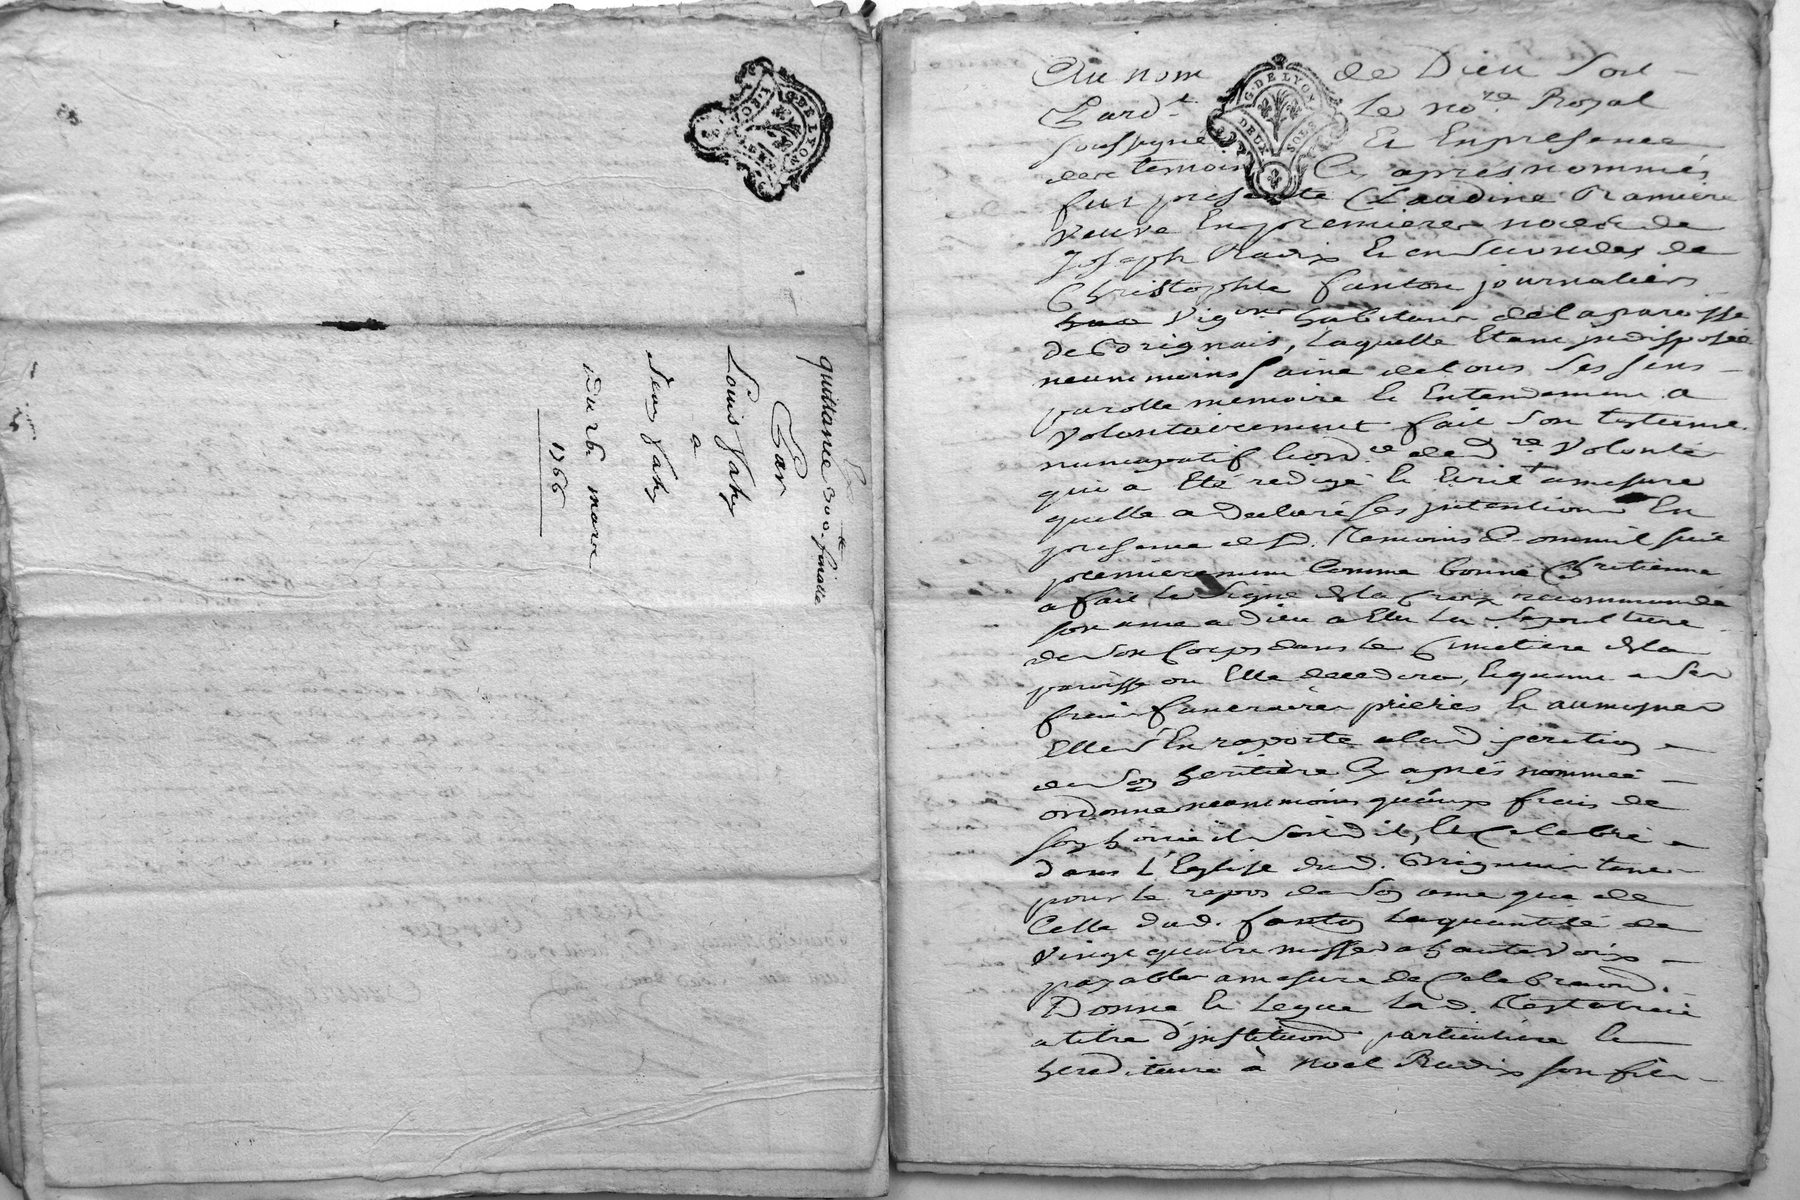 G. DE LYON
quittance 300 ^tt finalle
Par
Louis Vahy
a
Jean Vahy
Du 26 mars
1766
G. DE LYON
DEUX SOLS
Au nom de Dieu Soit
Pard.t le no.re Royal
soussigné Et En presence
des temoins Cy apres nommés
fut presente Claudine Ramiere
veuve En premieres noces de
Joseph Radix Et en Secondes de
Christophle fanton journalier
vigneron habitant de la paroisse
de Grignais, Laquelle Etant jndisposée
neanmoins Saine de tous Ses Sens
parolle memoire Et Entendement a
volontairement fait Son testament
nuncupatif et ord.ce de d.re volonté
qui a Eté redigé Et Ecrit a mesure
quelle a Declaré Ses jntentions En
presence desd. Temoins Comme il Suit
premierement Comme bonne Chretienne
a fait Le Signe de la Croix recommandé
son ame a Dieu a Elu La Sepulture
de Son Corps dans Le Cimetiere de la
paroisse ou Elle decedera, Et quant a Ses
frais funeraires prieres Et aumones
Elle S'En raporte a la discretion
de Son heritiere Cy après nommée
ordonne neanmoins qu'aux frais de
Son hoirie il Soit dit, Et Celebré
Dans L'Eglise dud. Grignais tant
pour Le repos de Son ame que de
Celle dud. fanton La quantité de
vingt quatre messes a haute voix
payables a mesure de Celebraon.
Donne Et Legue Lad. Testatrice
a titre d'jnstitution particuliere Et
hereditaire à Noel Radix Son fils